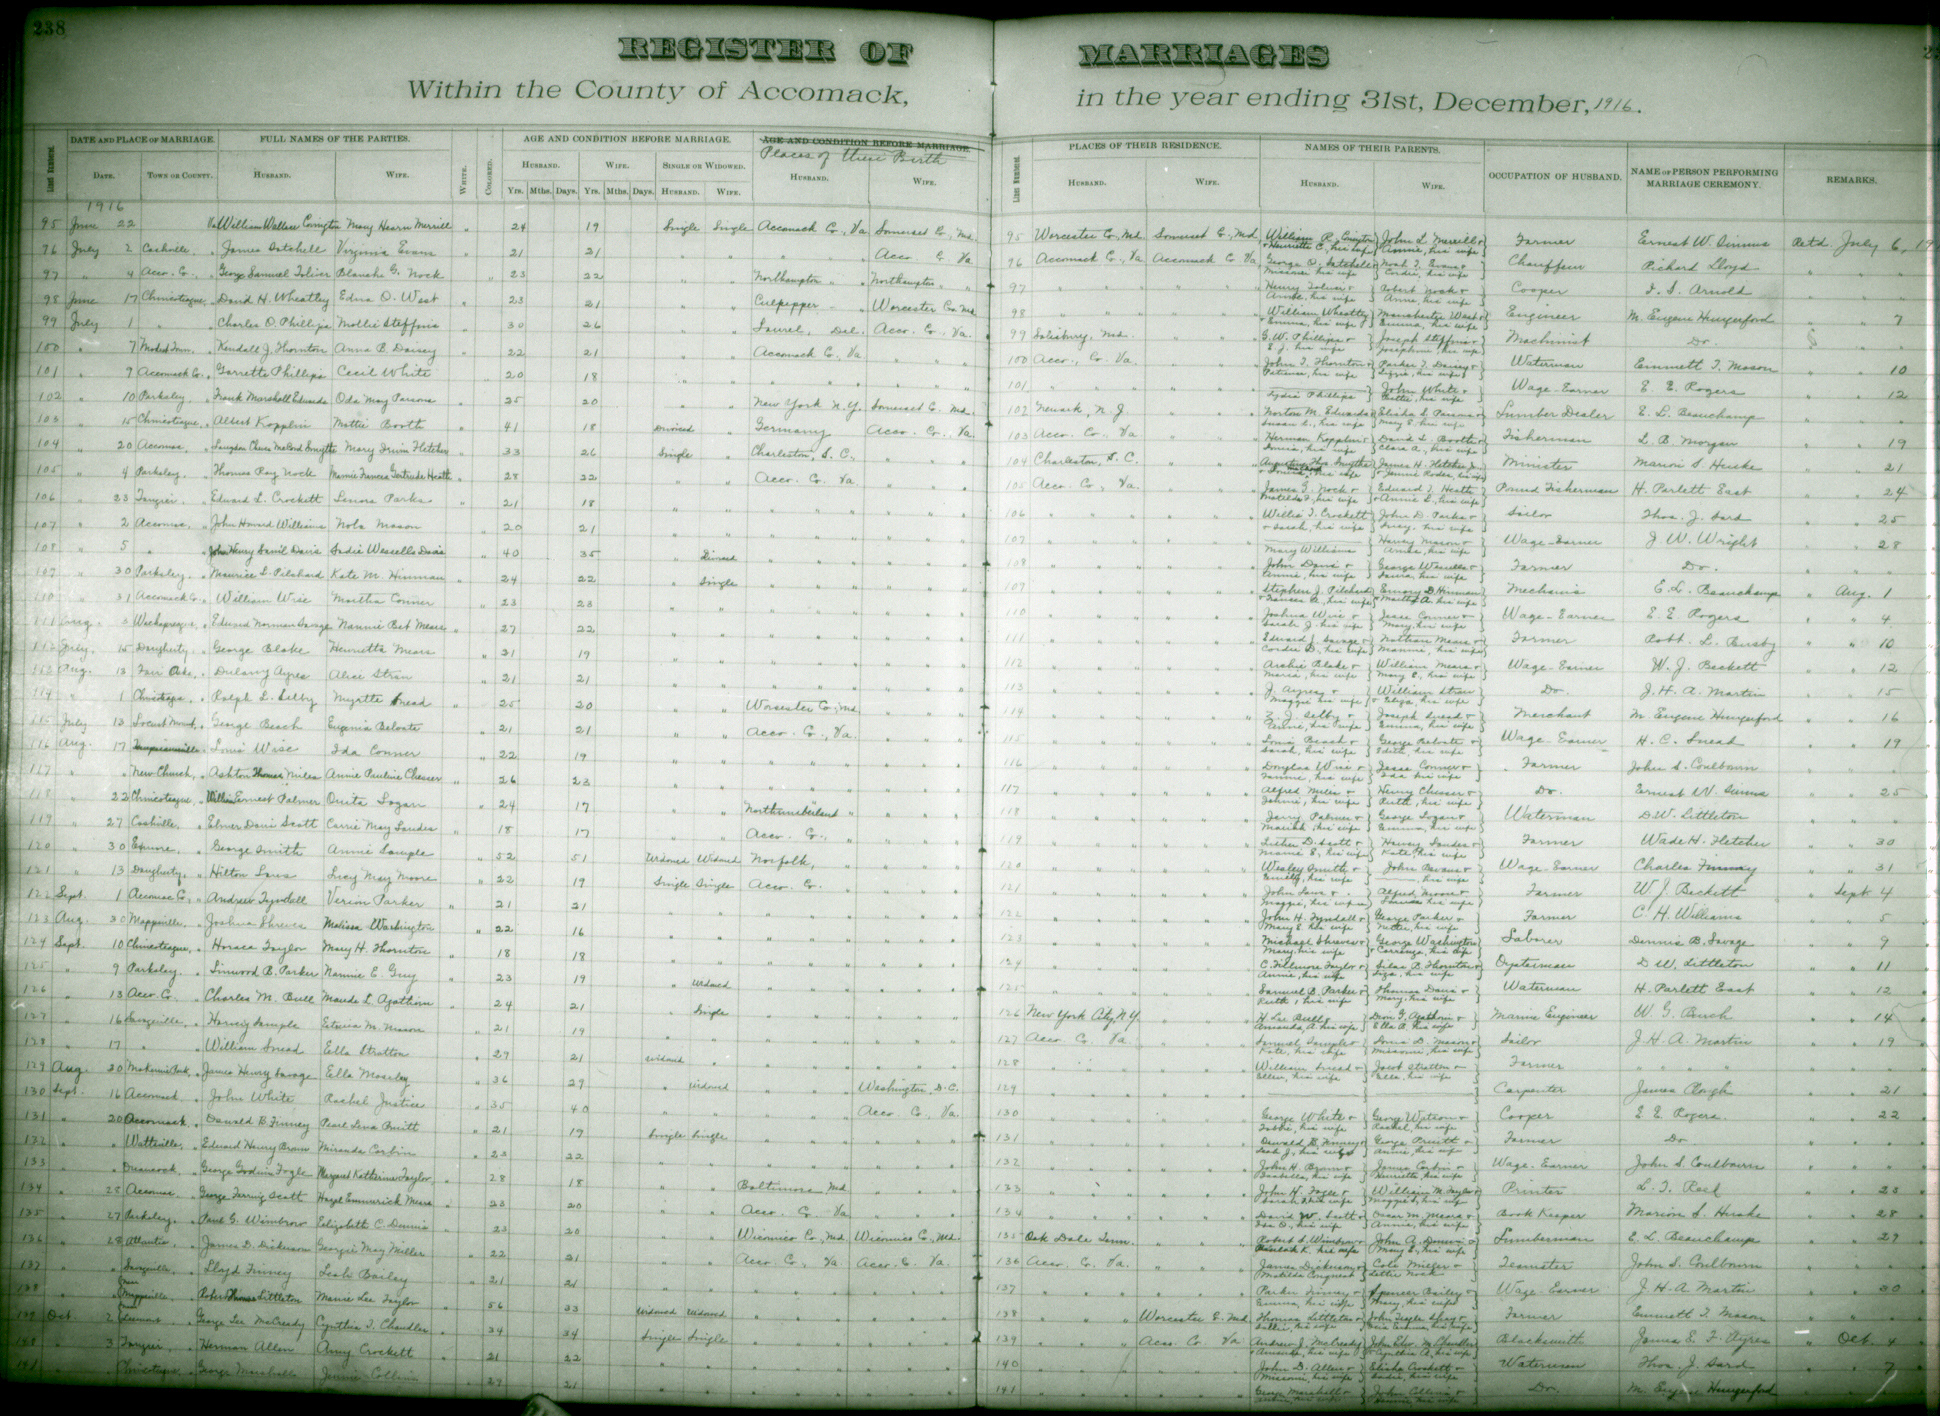 238
REGISTER OF MARRIAGES
Within the County of Accomack, in the year ending 31st, December, 1916.
LINES NUMBERED. DATE AND PLACE OF MARRIAGE. FULL NAMES OF THE PARTIES. WHITE. COLORED. AGE AND CONDITION BEFORE MARRIAGE. AGE AND CONDITION BEFORE MARRIAGE. Places of their Birth
DATE. TOWN OR COUNTY. HUSBAND. WIFE. HUSBAND. WIFE. SINGLE OR WIDOWED. HUSBAND. WIFE.
Yrs. Mths. Days. Yrs. Mths. Days. HUSBAND. WIFE.
1916
95 June 22 Va William Wallace Covington Mary Hearn Merrill " 24 19 Single Single Accomack Co., Va Somerset Co., Md.
96 July 2 Cashville, " James Satchell Virginia Evans " 21 21 " " " " " Acco. Co Va.
97 " 4 Acco. Co., " George Samuel Toliver Blanche G. Nock " 23 22 " " Northampton " Northampton "
98 June 17 Chincoteague, " David H. Wheatley Edna D. West " 23 21 " " Culpepper " Worcester Co Md.
99 July 1 " " Charles O. Phillips Mollie Steffins " 30 26 " " Laurel, Del. Acco. Co., Va.
100 " 7 Modest Town, " Kendall J. Thornton Anna B. Daisey " 22 21 " " Accomack Co., Va. " " "
101 " 9 Accomack Co. " Garrette Phillips Cecil White " 20 18 " " " " " " " "
102 " 10 Parksley " Frank Marshall Edwards Oda May Parsons " 25 20 " " New York N.Y. Somerset Co. Md.
103 " 15 Chincoteague, " Albert Kopplin Mattie Booth " 41 18 Divorced " Germany Acco. Co., Va.
104 " 20 Accomac, " Mary Irwin Fletcher " 33 26 Single " Charleston, S. C. " " "
105 " 4 Parksley, " Thomas Ray Nock Mamie Frances Gertrude Heath " 28 22 " " Acco. Co. Va. " " "
106 " 23 Tangier, " Edward L. Crockett Lenora Parks " 21 18 " " " " " " " "
107 " 2 Accomac, " John Howard Williams Nola Mason " 20 21 " " " " " " " "
108 " 5 " " John Henry Davis Sadie Wessells Davis " 40 35 " Divorced " " " " " "
109 " 30 Parksley. " Maurice L. Pilchard Kate M. Hinman " 24 22 " Single " " " " " "
110 " 31 Accomack Co. " William Wise Martha Conner " 23 23 " " " " " " " "
111 Aug. 3 Wachapreague, " Edward Norman Savage Nannie Bet Mears " 27 22 " " " " " " " "
112 July. 15 Daugherty. " George Blake Henrietta Mears " 21 19 " " " " " " " "
113 Aug. 13 Fair Oaks, " Dulaney Ayres Alice Stran " 21 21 " " " " " " " "
114 " 1 Chincoteague, " Ralph L. Selby Myrtle Snead " 25 20 " " Worcester Co., Md. " " "
115 July 13 Locust Mound, " George Beach Eugenia Belote " 21 21 " " Acco. Co., Va. " " "
116 Aug. 17 " Louis Wise Ida Conner " 22 19 " " " " " " " "
117 " " New Church, " Ashton Thomas Miles Annie Pauline Chesser " 26 23 " " " " " " " "
118 " 22 Chincoteague, " William Ernest Palmer Onita Logan " 24 17 " " Northumberland " " " "
119 " 27 Cashville, " Elmer Davis Scott Carrie May Landes " 18 17 " " Acco. Co., " " " "
120 " 30 Exmore, " George Smith Annie Sample " 52 51 Widowed Widowed Norfolk, " " " "
121 " 13 Daugherty, " Hilton Laws Lucy May Moore " 22 19 Single Single Acco. Co. " " " "
122 Sept. 1 Accomac Co., " Andrew Tyndall Verion Parker " 21 21 " " " " " " " "
123 Aug. 30 Mappsville, " Joshua Shreves Malissa Washington " 22 16 " " " " " " " "
124 Sept. 10 Chincoteague, " Horace Taylor Mary H. Thornton 18 18 " " " " " " " "
125 " 9 Parksley. " Linwood B. Parker Nannie E. Guy " 23 19 " Widowed " " " " " "
126 " 13 Acco Co. " Charles M. Bull Maude L. Agathon " 24 21 " Single " " " " " "
127 " 16 Savageville, " Harvey Sample Estevia M. Mason " 21 19 " " " " " " " "
128 " 17 " " William Snead Ella Stratton " 27 21 Widowed " " " " " " "
129 Aug. 20 " James Henry Savage Ella Moseley " 36 29 " Widowed " " " Washington, D.C.
130 Sept. 16 Accomack " John White Rachel Justice " 35 40 " " " " " Acco Co., Va.
131 " 20 Accomack. " Oswald B. Finney Pearl Lena Pruitt " 21 19 Single Single " " " " " "
132 " " Wattsville, " Edward Henry Brown Miranda Corbin " 23 22 " " " " " " " "
133 " " Onancock, " George Godwin Fogle Margaret Katherine Taylor " 28 18 " " Baltimore Md. " " "
134 " 25 Accomac " George Terwig Scott Hazel Emmerick Mears " 23 20 " " Acco. Co. Va. " " "
135 " 27 Parksley, " Paul G. Wimbrow Elizabeth C. Dennis " 23 20 " " Wicomico Co., Md. Wicomico Co., Md.
136 " 28 Atlantic, " James D. Dickerson Georgie May Miller " 22 21 " " Acco. Co., Va. Acco. Co. Va.
137 " " Savageville, " Lloyd Finney Leah Bailey " 21 21 " " " " " " " "
138 " " Mappsville, " Robert Thomas Littleton Mamie Lee Taylor " 56 33 Widowed Widowed " " " " " "
139 Oct. 2 " George Lee McCready Cynthia T. Chandler " 34 34 Single Single " " " " " "
140 " 3 Tangier, " Herman Allen Amy Crockett " 21 22 " " " " " " " "
141 " " Chincoteague, " George Marshall Jennie Collins " 27 21 " " " " " " " "
LINES NUMBERED. PLACES OF THEIR RESIDENCE. NAMES OF THEIR PARENTS. OCCUPATION OF HUSBAND. NAME OF PERSON PERFORMING MARRIAGE CEREMONY. REMARKS.
HUSBAND. WIFE. HUSBAND. WIFE.
95 Worcester Co., Md. Somerset Co., Md. William R. Covington & Henrietta C., his wife } John L. Merrill & Fannie, his wife } Farmer Ernest W. Simms Retd. July 6, 19
96 Accomack Co., Va Accomack Co Va. George D. Satchell & Missouri, his wife } Noah T. Evans & Cordie, his wife } Chauffeur Richard Lloyd " " "
97 " " " " " " Henry Toliver & Annie, his wife } Robert Nock & Annie, his wife } Cooper I. S. Arnold " " "
98 " " " " " " William Wheatley & Emma, his wife } West & Emma, his wife } Engineer M. Eugene Hungerford " " 7
99 Salisbury, Md. " " " G. W. Phillips & E. J. his wife } Joseph Steffins & Josephine, his wife } Machinist Do. " " "
100 Acco., Co. Va. " " " John T. Thornton & Patience, his wife } Parker T. Daisey & Lizzie, his wife } Waterman Emmett T. Mason " " 10
101 " " " " " " Lydia Phillips } John White & Bettie, his wife } Wage-Earner E. E. Rogers " " 12
102 Newark, N. J. " " " Norton M. Edwards & Susan L., his wife } Elisha S. Parsons & Mary E. his wife } Lumber Dealer E. L. Beauchamp " " "
103 Acco. Co., Va. " " " Herman Kopplin & Louisa, his wife } David L. Booth & Clara A., his wife } Fisherman L. B. Morgan " " 19
104 Charleston, S. C. " " " James H. Fletcher Jr. } Minister Marion S. Huske " " 21
105 Acco. Co., Va. " " " James G. Nock & Matilda F., his wife } Edward T. Heath & Annie L., his wife } Pound Fisherman H. Parlett East " " 24
106 " " " " " " Willis T. Crockett & Sarah, his wife } John D. Parks & Lucy, his wife } Sailor Thos. J. Sard " " 25
107 " " " " " " Mary Williams } Harvey Mason & Annie, his wife } Wage-Earner J W. Wright " " 28
108 " " " " " " John Davis & Annie, his wife } George Wessells & Laura, his wife } Farmer Do. " " "
109 " " " " " " Stephen J. Pilchard & Frances A., his wife } Emory D. Hinman & Martha A. his wife } Mechanic E. L. Beauchamp " Aug. 1
110 " " " " " " Joshua Wise & Sarah J. his wife } Jesse Conner & Mary, his wife } Wage-Earner E E. Rogers " " 4
111 " " " " " " Edward J. Savage & Cordie D., his wife } Nathan Mears & Mamie, his wife } Farmer Robt. L. Busby " " 10
112 " " " " " " Archie Blake & Maria, his wife } William Mears & Mary E., his wife } Wage-Earner W. J. Beckett " " 12
113 " " " " " " J. Ayres & Maggie his wife } William Stran & Eliza, his wife } Do. J. H. A. Martin " " 15
114 " " " " " " Z. J. Selby & Fannie, his wife } Joseph Snead & Emma, his wife } Merchant M Eugene Hungerford " " 16
115 " " " " " " Louis Beach & Sarah, his wife } George Belote & Edith, his wife } Wage-Earner H. C. Snead " " 19
116 " " " " " " Douglas Wise & Fannie, his wife } Jesse Conner & Ida his wife } Farmer John S. Coulbourn " " "
117 " " " " " " Alfred Miles & Johnie, his wife } Henry Chesser & Ruth, his wife } Do. Ernest W. Simms " " 25
118 " " " " " " Jerry Palmer & his wife } George Logan & Emma, his wife } Waterman D.W. Littleton " " "
119 " " " " " " Luther D. Scott & Mamie E., his wife } Harvey Landes & Kate, his wife } Farmer Wade H. Fletcher " " 30
120 " " " " " " Wesley Smith & Emily, his wife } John Bevans & his wife } Wage-Earner Charles Finney " " 31
121 " " " " " " John Laws & Maggie, his wife } Alfred Moore & Louisa, his wife } Farmer W. J. Beckett " Sept. 4
122 " " " " " " John H. Tyndall & Mary E. his wife } George Parker & Nettie, his wife } Farmer C. H. Williams " " 5
123 " " " " " " Michael Shreves & Mary, his wife } George Washington & his wife } Laborer Dennis B. Savage " " 9
124 " " " " " " C. Fillmore Taylor & Annie, his wife } Silas B. Thornton & Liza, his wife } Oysterman D W. Littleton " " 11
125 " " " " " " Samuel B. Parker & Ruth, his wife } Thomas Davis & Mary, his wife } Waterman H. Parlett East " " 12
126 New York City, N.Y. " " " H. Lee Bull & Amanda, A. his wife } Agathon & Ella B. his wife } Marine Engineer W. G. Burch " " 14
127 Acco. Co. Va. " " " Samuel Sample & Kate, his wife } Louis D. Mason & Missouri, his wife } Sailor J. H. A. Martin " " 19
128 " " " " " " William Snead & Ellen, his wife } Jacob Stratton & Ella, his wife } Farmer " " " " "
129 " " " " " " Carpenter James Clough " " 21
130 " " " " " " George White & his wife } George Watson & Rachel, his wife } Cooper E E. Rogers. " " 22
131 " " " " " " Oswald B. Finney & Leah J., his wife } George Pruitt & Annie, his wife } Farmer Do " " "
132 " " " " " " John H. Brown & his wife } James Corbin & Henrietta his wife } Wage-Earner John S. Coulbourn " " "
133 " " " " " " John H. Fogle & Sarah his wife } William M. Taylor & Maggie E. his wife } Printer L. T. Reed " " 23
134 " " " " " " David W. Scott & Ida O., his wife } Oscar M. Mears & Annie, his wife } Book Keeper Marion S. Huske " " 28
135 Oak Dale Tenn. " " " Robert S. Wimbrow & K. his wife } John A. Dennis & Mary E., his wife } Lumberman E. L. Beauchamp " " 29
136 Acco. Co. Va. " " " James Dickerson & Matilda Conquest } Cole Miller & Lettie Nock } Teamster John S. Coulbourn " " "
137 " " " " " " Parker Finney & Emma, his wife } Spencer Bailey & Mary, his wife } Wage-Earner J. H. A Martin " " 30
138 " " " Worcester Co. Md. Thomas Littleton & Sallie, his wife } John Taylor & his wife } Farmer Emmett T. Mason " " "
139 " " " Acco. Co. Va. Andrew J. McCready & Amanda, his wife } John Edw. M. Chandler & Cynthia A., his wife } Blacksmith James E. F. Ayres " Oct. 4
140 " " " " " " John D. Allen & Missouri, his wife } Elisha Crockett & Sadie, his wife } Waterman Thos. J. Sard " " 7
141 " " " " " " George Marshall & his wife } John Collins & Jennie, his wife } Do. M. Eugene Hungerford " " "